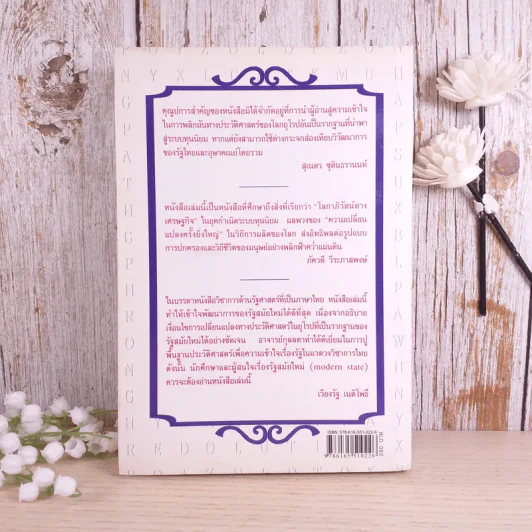 คุณูปการสำคัญของหนังสือมิได้จำกัดอยู่ที่การนำผู้อ่านสู่ความเข้าใจ
ในการพลิกผันทางประวัติศาสตร์ของโลกยุโรปอันเป็นรากฐานที่นำพา
สู่ระบบทุนนิยม หากแต่ยังสามารถใช้ต่างกระจกส่องเทียบวิวัฒนาการ
ของรัฐไทยและอุษาคเนย์โดยรวม
สุเนตร ชุตินธรานนท์
หนังสือเล่มนี้เป็นหนังสือที่ศึกษาถึงสิ่งที่เรียกว่า "โลกาภิวัตน์ทาง
เศรษฐกิจ" ในยุคกำเนิดระบบทุนนิยม ผลพวงของ "ความเปลี่ยน
แปลงครั้งยิ่งใหญ่" ในวิถีการผลิตของโลก ส่งอิทธิพลต่อรูปแบบ
การปกครองและวิถีชีวิตของมนุษย์อย่างพลิกฟ้าคว่ำแผ่นดิน
ภัควดี วีระภาสพงษ์
ในบรรดาหนังสือวิชาการด้านรัฐศาสตร์ที่เป็นภาษาไทย หนังสือเล่มนี้
ทำให้เข้าใจพัฒนาการของรัฐสมัยใหม่ได้ดีที่สุด เนื่องจากอธิบาย
เงื่อนไขการเปลี่ยนแปลงทางประวัติศาสตร์ในยุโรปที่เป็นรากฐานของ
รัฐสมัยใหม่ได้อย่างชัดเจน อาจารย์กุลลดาทำได้ดีเยี่ยมในการปู
พื้นฐานประวัติศาสตร์เพื่อความเข้าใจเรื่องรัฐในแวดวงวิชาการไทย
ดังนั้น นักศึกษาและผู้สนใจเรื่องรัฐสมัยใหม่ (modern state)
ควรจะต้องอ่านหนังสือเล่มนี้
เวียงรัฐ เนติโพธิ์
ISBN: 978-616-551-822-6
9786165518226